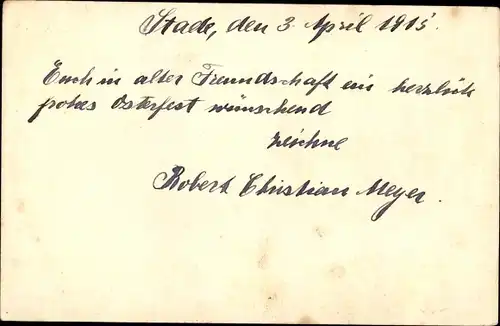 Stade, den 3. April 1915.
Euch in alter Freundschaft ein herzlich
frohes Osterfest wünschend
zeichne
Robert Christian Meyer.